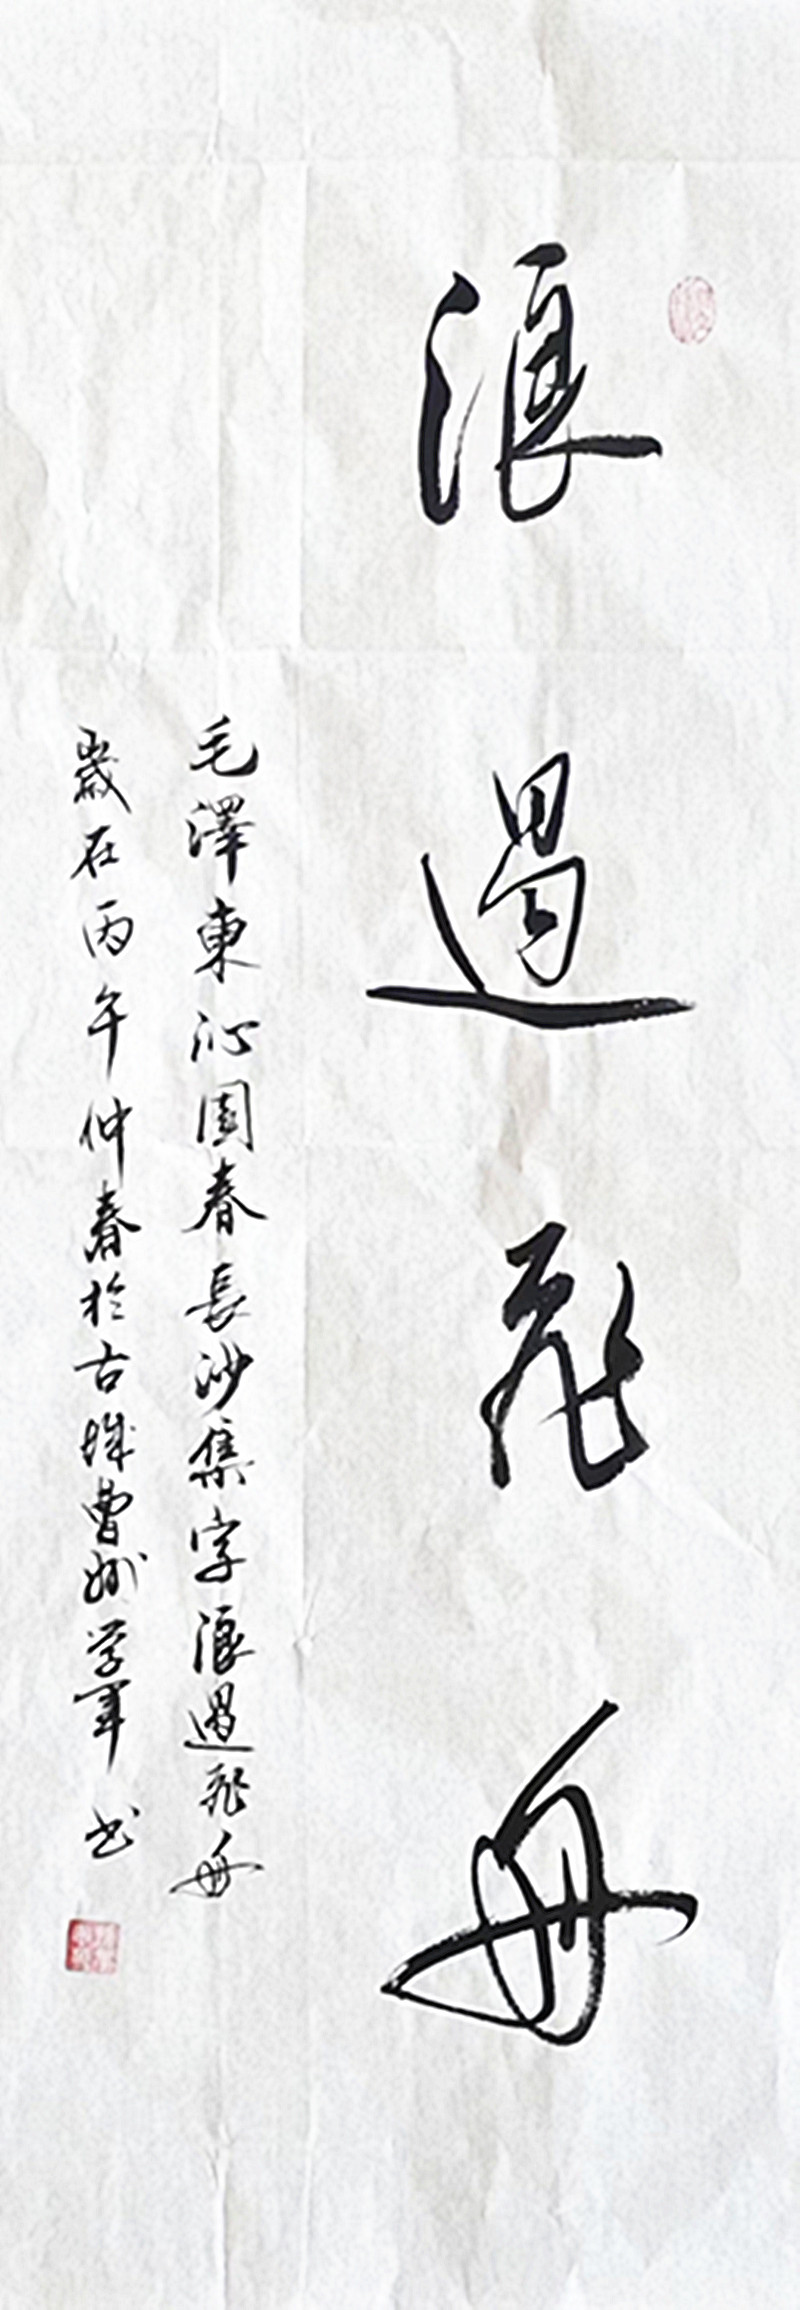 浪遏飛舟
毛澤東沁園春長沙集字浪遏飛舟
歲在丙午仲春於古城曹州学軍书